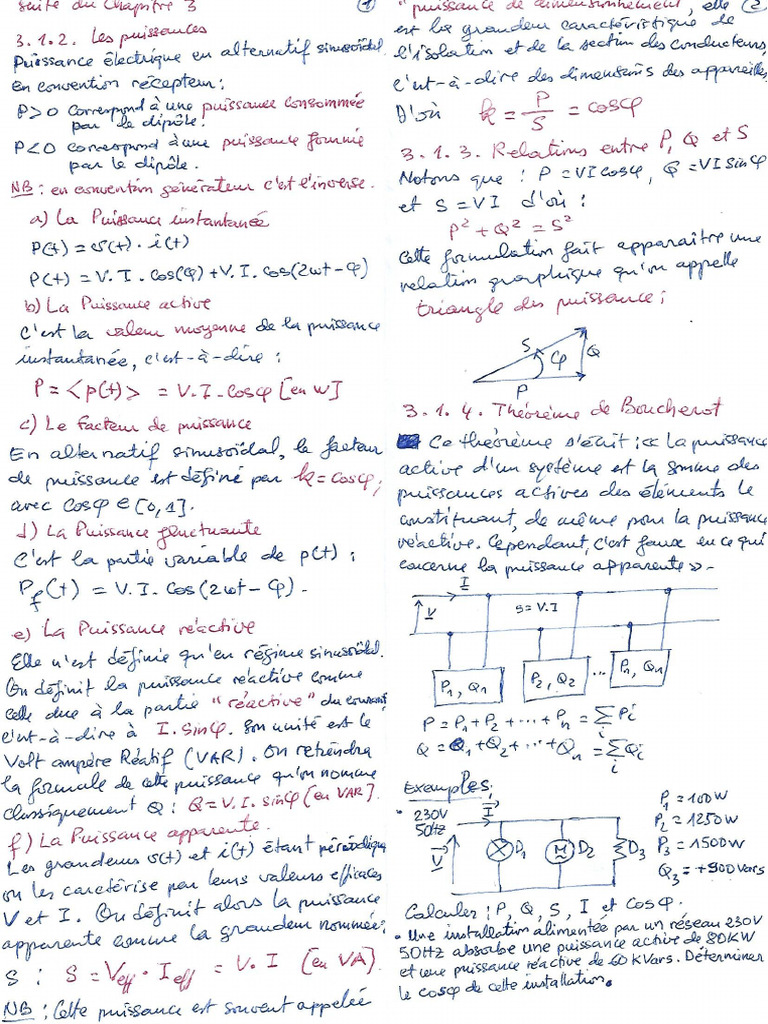 suite du Chapitre 3
1
3.1.2. Les puissances
Puissance électrique en alternatif sinusoïdal
En convention récepteur :
P>0 correspond à une puissance consommée
par le dipôle.
P<0 correspond à une puissance fournie
par le dipôle.
NB : en convention générateur c'est l'inverse.
a) La Puissance instantanée
P(t) = v(t) · i(t)
P(t) = V.I. cos(φ) + V.I. cos(2ωt - φ)
b) La Puissance active
C'est la valeur moyenne de la puissance
instantanée, c'est-à-dire :
P = <p(t)> = V.I.cosφ [en W]
c) Le facteur de puissance
En alternatif sinusoïdal, le facteur
de puissance est défini par k = cosφ,
avec cosφ ∈ [0,1].
d) La Puissance fluctuante
C'est la partie variable de p(t) :
Pf(t) = V.I. cos(2ωt - φ).
e) La Puissance réactive
Elle n'est définie qu'en régime sinusoïdal.
On définit la puissance réactive comme
celle due à la partie "réactive" du courant
c'est-à-dire à I.sinφ. Son unité est le
Volt ampère Réatif (VAR). On retiendra
la formule de cette puissance qu'on nomme
classiquement Q : Q = V.I. sinφ [en VAR].
f) La Puissance apparente.
Les grandeurs v(t) et i(t) étant périodiques
on les caractérise par leurs valeurs efficaces
V et I. On définit alors la puissance
apparente comme la grandeur nommée
S : S = Veff · Ieff = V.I [en VA].
NB : Cette puissance est souvent appelée
"puissance de dimensionnement", elle
2
est la grandeur caractéristique de
l'isolation et de la section des conducteurs,
c'est-à-dire des dimensions des appareilles
D'où k = P/S = cosφ
3.1.3. Relations entre P, Q et S
Notons que : P = VI cosφ, Q = VI sinφ
et S = VI d'où :
P² + Q² = S²
Cette formulation fait apparaître une
relation graphique qu'on appelle
triangle des puissance :
S φ Q
P
3.1.4. Théorème de Boucherot
Ce théorème s'écrit : « La puissance
active d'un système est la somme des
puissances actives des éléments le
constituant, de même pour la puissance
réactive. Cependant, c'est faux en ce qui
concerne la puissance apparente ».
I
V S = V.I
P1, Q1 P2, Q2 ... Pn, Qn
P = P1 + P2 + ... + Pn = Σi Pi
Q = Q1 + Q2 + ... + Qn = Σi Qi
Exemples :
• 230V
50Hz
I
V
D1 M D2 D3
P1 = 100W
P2 = 1250W
P3 = 1500W
Q3 = +900Vars
Calculer : P, Q, S, I et Cosφ.
• Une installation alimentée par un réseau 230V
50Hz absorbe une puissance active de 80KW
et une puissance réactive de 60 KVars. Déterminer
le cosφ de cette installation.